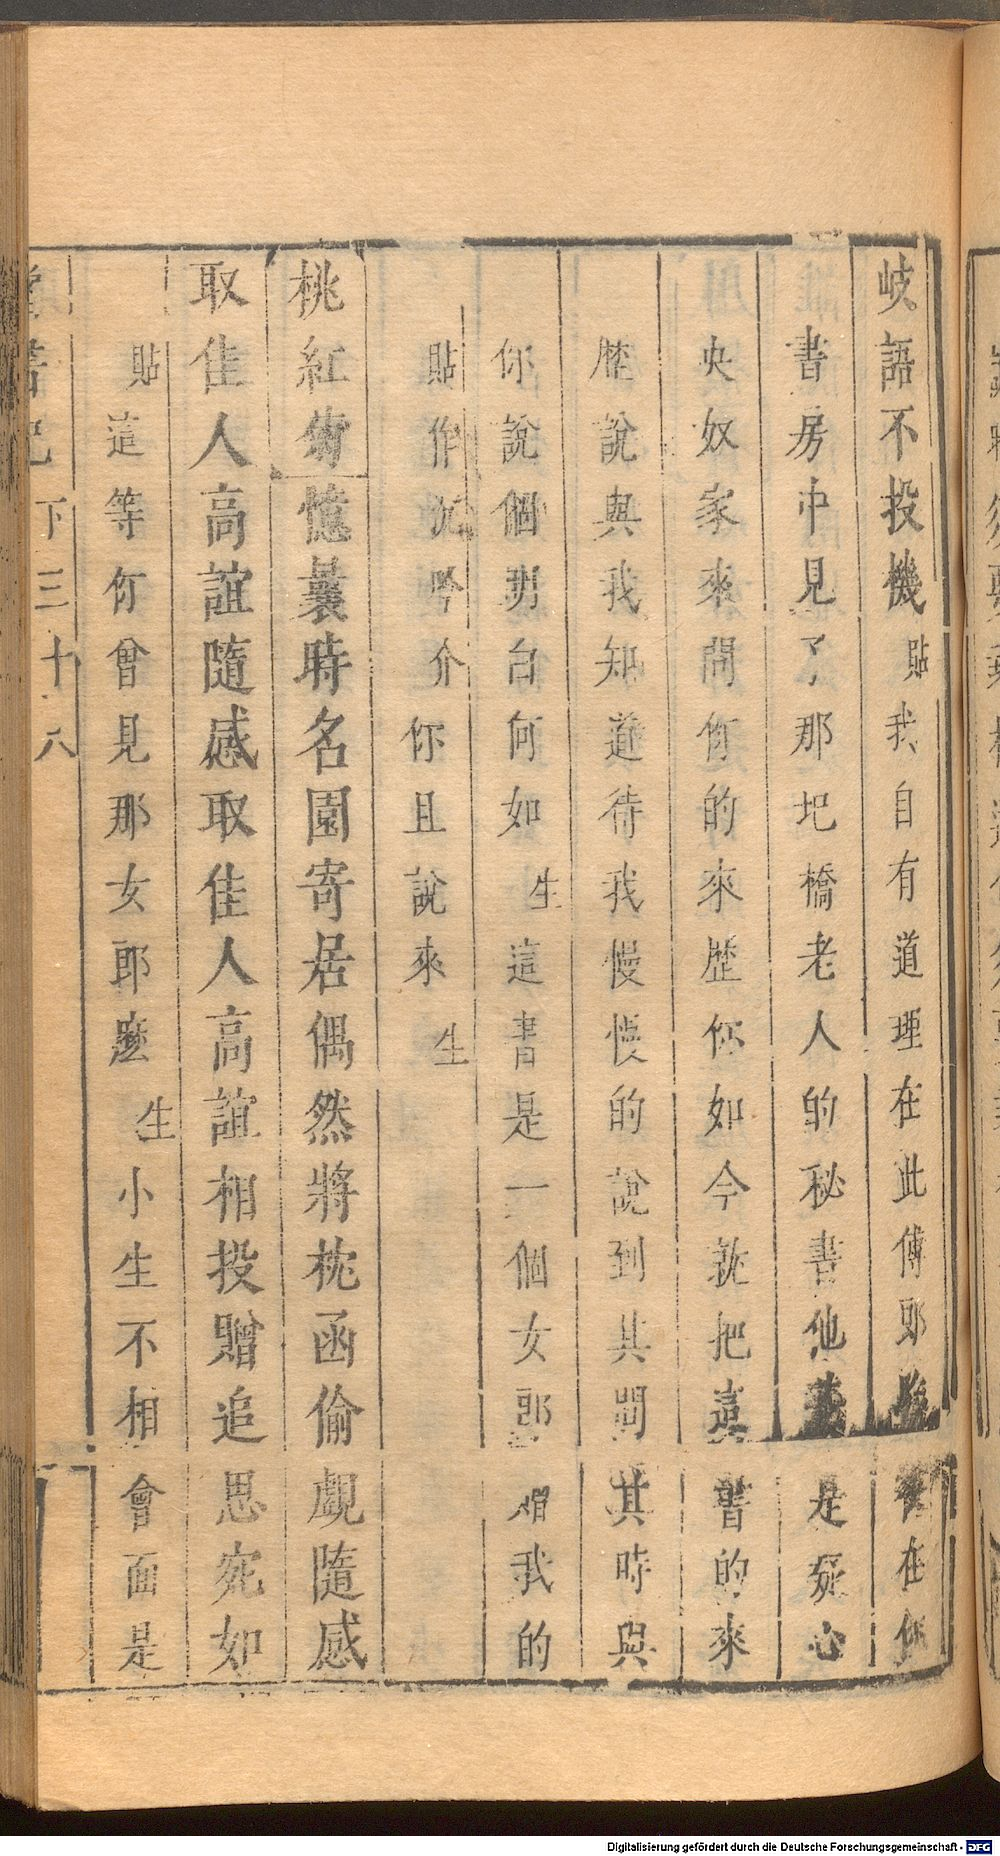 岐語不投機貼我自有道理在此傅郎 在你
書房中見了那圯橋老人的秘書他 是疑心
央奴家來問你的來歷你如今就把這書的來
歷說與我知道待我慢慢的說到其間其時與
你說個明白何如生這書是一個女郎贈我的
貼作沉吟介你且說來生
桃紅菊憶曩時名園寄居偶然將枕函偷覷隨感
取佳人高誼隨感取佳人高誼相投贈追思宛如
貼這等你曾見那女郎麽生小生不相會面是
下三十八
Digitalisierung gefördert durch die Deutsche Forschungsgemeinschaft - DFG